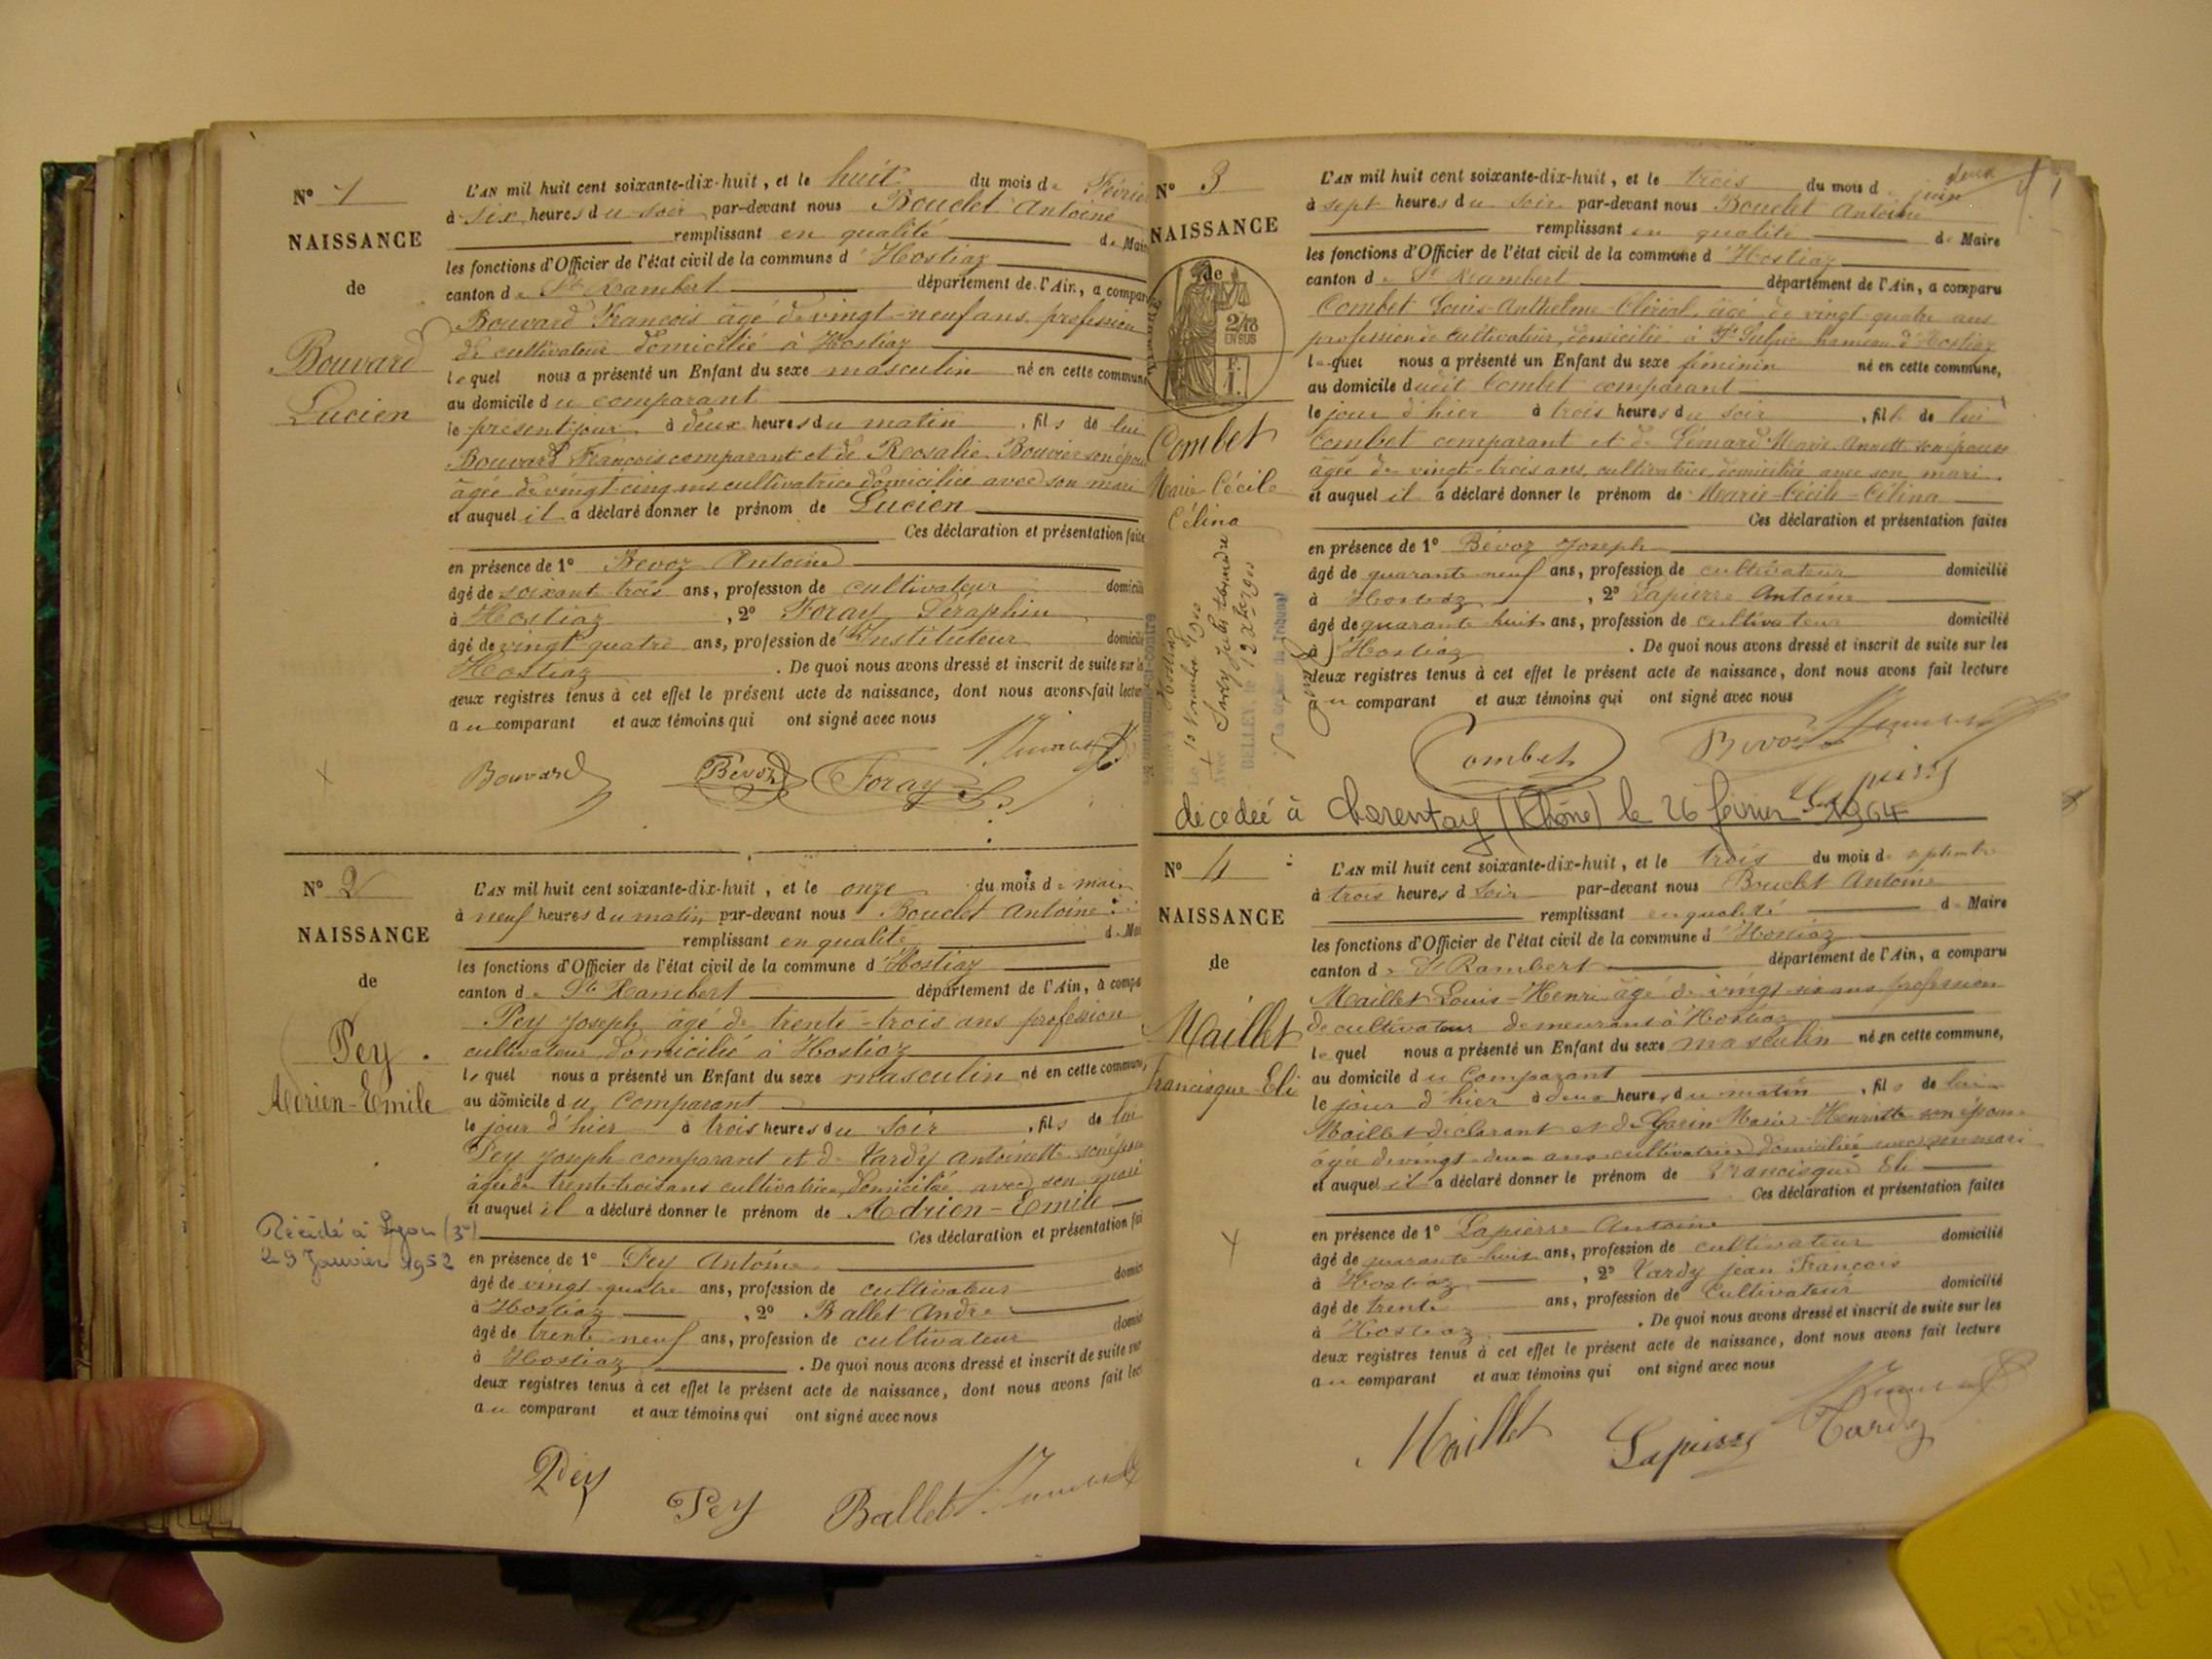 N° 1
NAISSANCE
de
Bouvard
Lucien
L'AN mil huit cent soixante-dix-huit, et le huit du mois de Février
à six heures du soir par-devant nous Bouclet Antoine
remplissant en qualité de Maire
les fonctions d'Officier de l'état civil de la commune d'Hostiaz
canton de St Rambert département de l'Ain, a comparu
Bouvard François âgé de vingt-neuf ans, profession
de cultivateur domicilié à Hostiaz
lequel nous a présenté un Enfant du sexe masculin né en cette commune
au domicile du comparant
le présent jour à deux heures du matin, fils de lui
Bouvard François comparant et de Rosalie Bouvier son épouse
âgée de vingt-cinq ans cultivatrice domiciliée avec son mari
et auquel il a déclaré donner le prénom de Lucien
Ces déclaration et présentation faites
en présence de 1° Bévoz Antoine
âgé de soixante trois ans, profession de cultivateur domicilié
à Hostiaz, 2° Foray Séraphin
âgé de vingt quatre ans, profession d'Instituteur domicilié
Hostiaz. De quoi nous avons dressé et inscrit de suite sur les
deux registres tenus à cet effet le présent acte de naissance, dont nous avons fait lecture
au comparant et aux témoins qui ont signé avec nous
Bouvard Bévoz Foray S.
N° 2
NAISSANCE
de
Pey
Adrien-Emile
Décédé à Lyon (3e)
29 Janvier 1952
L'AN mil huit cent soixante-dix-huit, et le onze du mois de mai
à neuf heures du matin par-devant nous Bouclet Antoine
remplissant en qualité de Maire
les fonctions d'Officier de l'état civil de la commune d'Hostiaz
canton de St Rambert département de l'Ain, a comparu
Pey Joseph âgé de trente-trois ans profession
cultivateur domicilié à Hostiaz
lequel nous a présenté un Enfant du sexe masculin né en cette commune,
au domicile du Comparant
le jour d'hier à trois heures du soir, fils de lui
Pey Joseph comparant et de Tardy Antoinette son épouse
âgée de trente-trois ans cultivatrice domiciliée avec son mari
et auquel il a déclaré donner le prénom de Adrien-Emile
Ces déclaration et présentation faites
en présence de 1° Pey Antoine
âgé de vingt-quatre ans, profession de cultivateur domicilié
à Hostiaz, 2° Ballet André
âgé de trente neuf ans, profession de cultivateur domicilié
à Hostiaz. De quoi nous avons dressé et inscrit de suite sur
deux registres tenus à cet effet le présent acte de naissance, dont nous avons fait lecture
au comparant et aux témoins qui ont signé avec nous
Pey Pey Ballet
N° 3
NAISSANCE
de
2/10
EN SUS
F.
1.
Combet
Marie Cécile
Célina
L'AN mil huit cent soixante-dix-huit, et le trois du mois de juin
à sept heures du soir par-devant nous Bouclet Antoine
remplissant en qualité de Maire
les fonctions d'Officier de l'état civil de la commune d'Hostiaz
canton de St Rambert département de l'Ain, a comparu
Combet Louis-Anthelme âgé de vingt-quatre ans
profession de cultivateur, domicilié à St Sulpice hameau d'Hostiaz
lequel nous a présenté un Enfant du sexe féminin né en cette commune,
au domicile dudit Combet comparant
le jour d'hier à trois heures du soir, fille de lui
Combet comparant et de Marie son épouse
âgée de vingt-trois ans, cultivatrice domiciliée avec son mari
et auquel il a déclaré donner le prénom de Marie-Cécile-Célina
Ces déclaration et présentation faites
en présence de 1° Bévoz Joseph
âgé de quarante neuf ans, profession de cultivateur domicilié
à Hostiaz, 2° Lapierre Antoine
âgé de quarante huit ans, profession de cultivateur domicilié
à Hostiaz. De quoi nous avons dressé et inscrit de suite sur les
deux registres tenus à cet effet le présent acte de naissance, dont nous avons fait lecture
au comparant et aux témoins qui ont signé avec nous
Combet Bévoz
Lapierre
décédée à Charentay (Rhône) le 26 février 1964
N° 4
NAISSANCE
de
Maillet
Francisque Eli
L'AN mil huit cent soixante-dix-huit, et le trois du mois de septembre
à trois heures d soir par-devant nous Bouclet Antoine
remplissant en qualité de Maire
les fonctions d'Officier de l'état civil de la commune d'Hostiaz
canton de St Rambert département de l'Ain, a comparu
Maillet Louis-Henri âgé de vingt six ans profession
de cultivateur demeurant à Hostiaz
lequel nous a présenté un Enfant du sexe masculin né en cette commune,
au domicile du Comparant
le jour d'hier à deux heures du matin, fils de lui
Maillet déclarant et de Garin Marie-Henriette son épouse
âgée de vingt-deux ans cultivatrice domiciliée avec son mari
et auquel il a déclaré donner le prénom de Francisque Eli
Ces déclaration et présentation faites
en présence de 1° Lapierre Antoine
âgé de quarante-huit ans, profession de cultivateur domicilié
à Hostiaz, 2° Tardy Jean François
âgé de trente ans, profession de Cultivateur domicilié
à Hostiaz. De quoi nous avons dressé et inscrit de suite sur les
deux registres tenus à cet effet le présent acte de naissance, dont nous avons fait lecture
au comparant et aux témoins qui ont signé avec nous
Maillet Lapierre Tardy